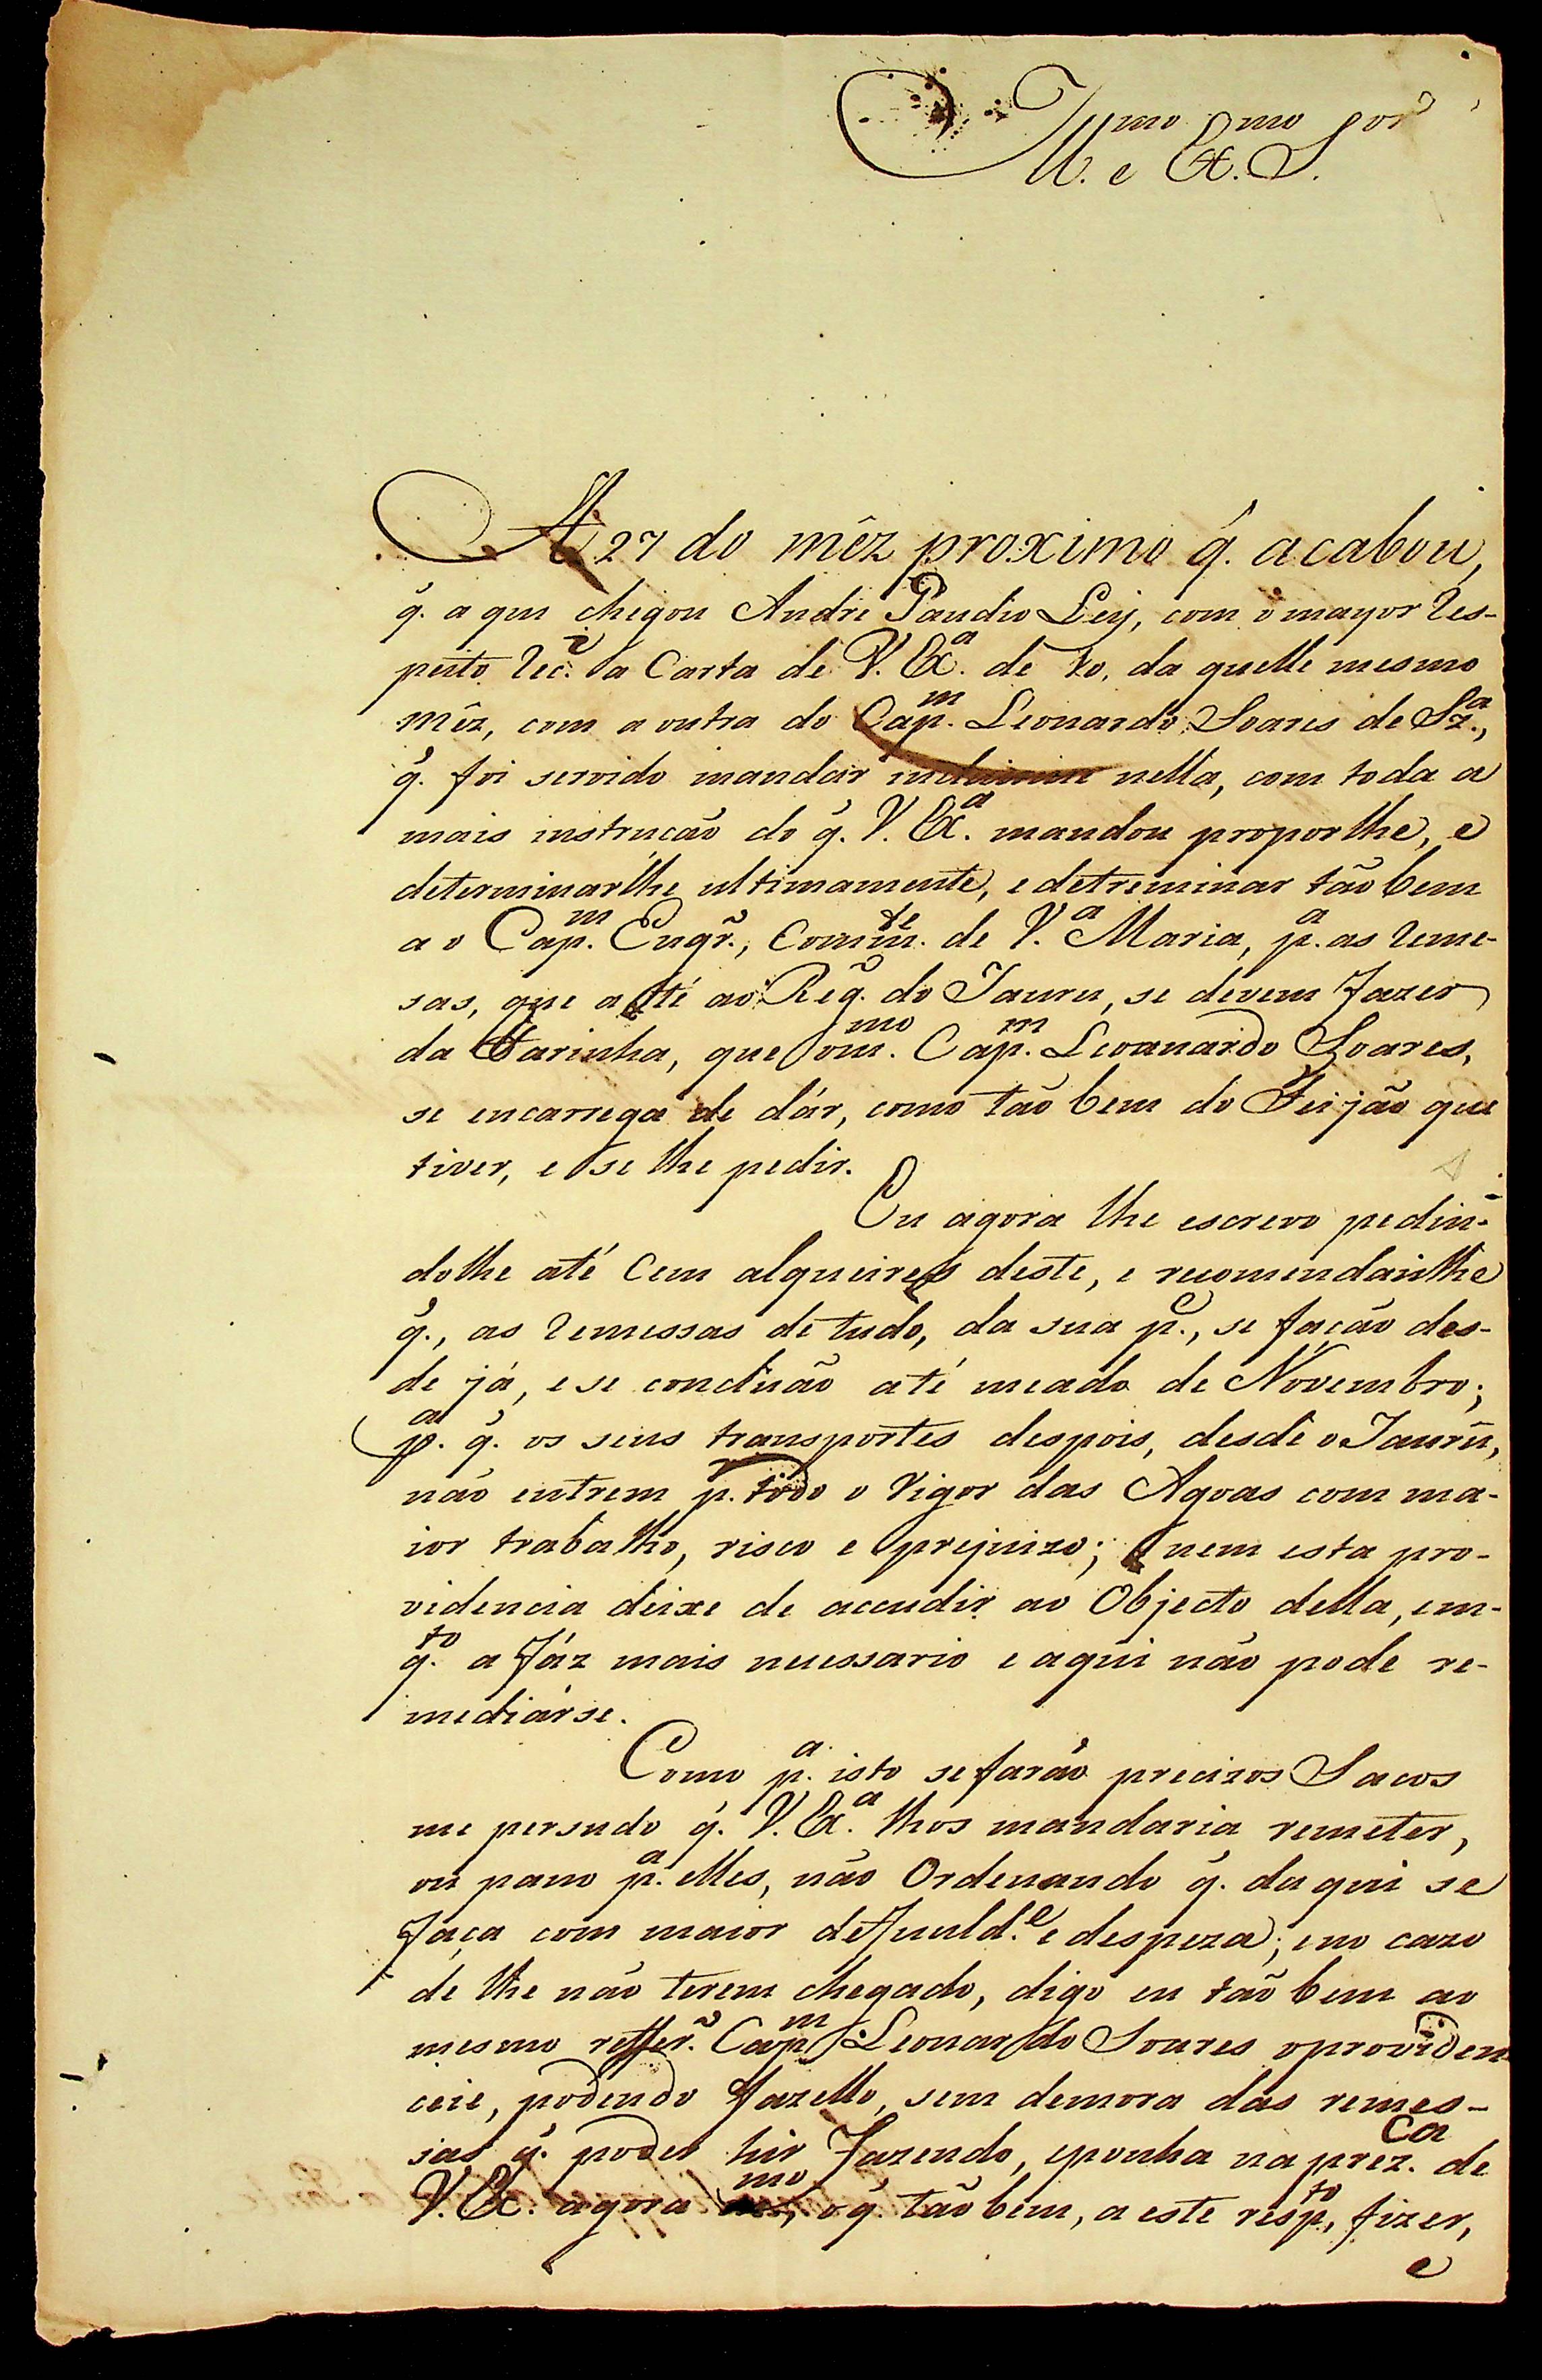 Ill.mo e Ex.mo S.or
A 27 do mêz proximo q̃. acabou,
q̃. a qui chegou Andrè Gaudio Ley, com o mayor Res-
peito Rec.i a Carta de V. Ex.a de 10, da quelle mesmo
mêz, com a outra do Cap.m Leonardo Soares de Sz.a,
q̃. foi servido mandar nella, com toda a
mais instrucão do q̃. V. Ex.a mandou proporlhe, e
determinarlhe ultimamente, e detreminar tão bem
a o Cap.m Engr̃., Comm.te de V.a Maria, p.a as Reme-
sas, que a thé ao Reg̃. do Jauru, se devem fazer
da Farinha, que o m.mo Cap.m Leoanardo Soares,
se encarrega de dár, como tão bem do Feijão que
tiver, e se lhe pedir.
Eu agora lhe escrevo pedin-
dolhe até Cem alqueires deste, e recomendarlhe
q̃., as Remessas de tudo, da sua p.e, se fação des-
de já, e se concluão até meado de Novembro;
p.a q̃. os seus transportes despois, desde o Jaurú,
não entrem p.r todo o Vigor das Agoas com ma-
ior trabalho, risco e prejuizo; nem esta pro-
videncia deixe de accudir ao Objecto della, em-
q.to a fáz mais necessario e aqui não pode re-
mediárse.
Como p.a isto se farão precizos Sacos
me persudo q̃. V. Ex.a lhos mandaria remeter,
ou pano p.a elles, não Ordenando q̃. da qui se
faça com maior deficuld.e e despeza; em cazo
de lhe não terem chegado, digo eu tão bem ao
mesmo reffer.o Cap.m Leonardo Soares o providen-
ceie, podendo fazello, sem demora das remes-
sas q̃. poder hir fazendo, e ponha na prez.ca de
V. Ex. agora mo, o q̃. tão bem, a este resp.to, fizer,
e